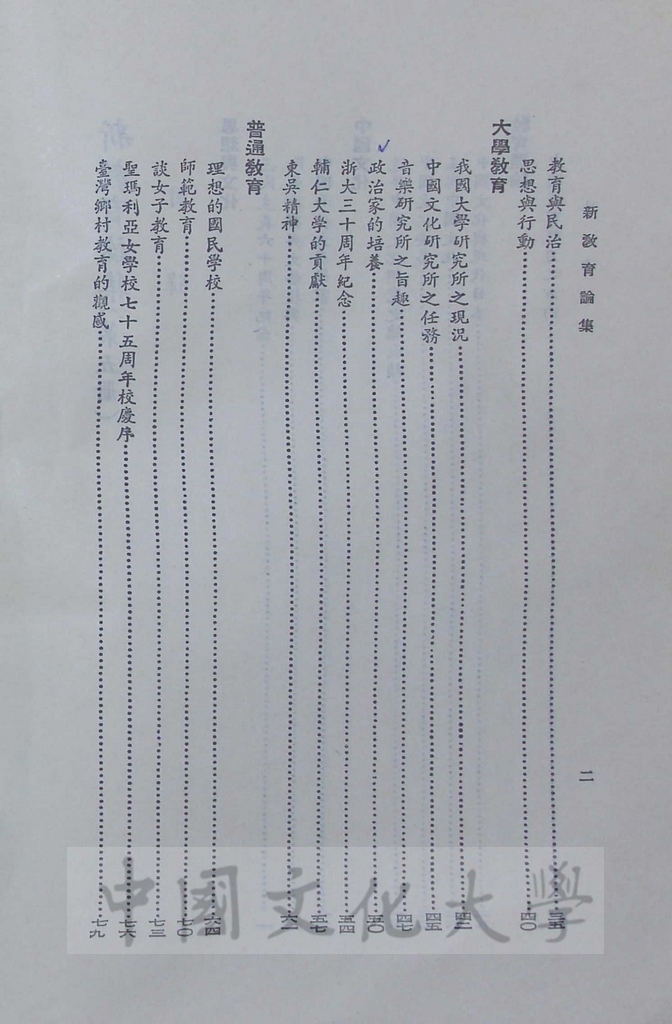 新教育論集
二
教育與民治……三五
思想與行動……四〇
大學教育
我國大學研究所之現況……四三
中國文化研究所之任務……四五
音樂研究所之旨趣……四七
政治家的培養……五〇
浙大三十周年紀念……五四
輔仁大學的貢獻……五七
東吳精神……六一
普通教育
理想的國民學校……六四
師範教育……七〇
談女子教育……七三
聖瑪利亞女學校七十五周年校慶序……七六
臺灣鄉村教育的觀感……七九
中國文化大學